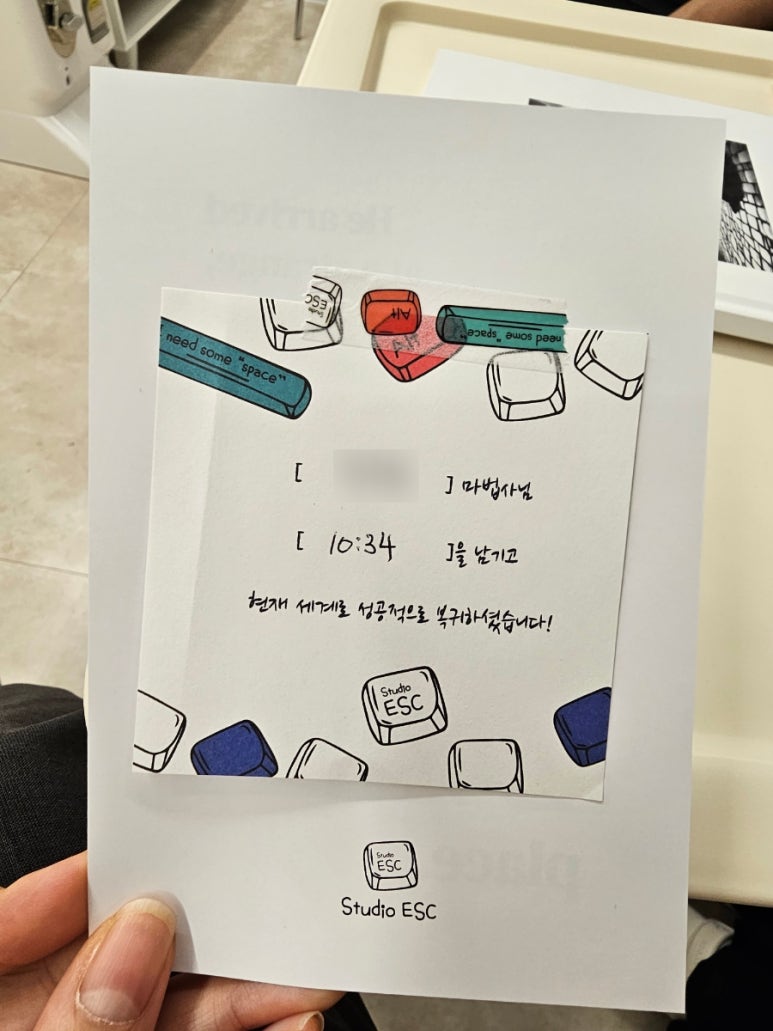 He arrived
Studio
ESC
Alt
need some "space"
need some "space"
[ ] 마법사님
[ 10:34 ]을 남기고
현재 세계로 성공적으로 복귀하셨습니다!
Studio
ESC
place
Studio
ESC
Studio ESC